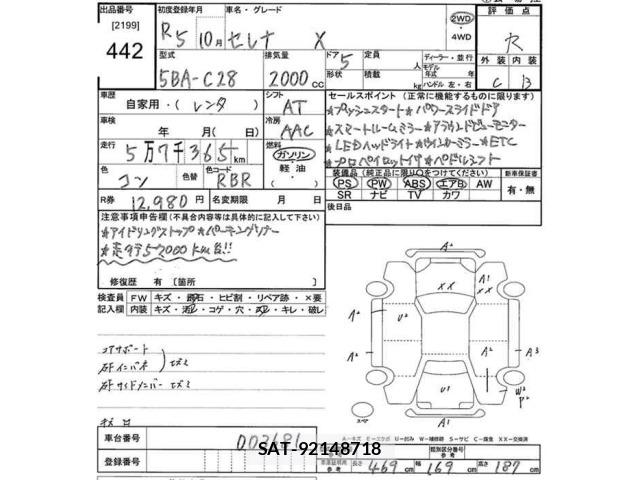 出品番号 初度登録年月 車名・グレード 評価点
[2199] R5 10月 セレナ X 2WD 4WD
442 型式 排気量 ドア 定員 ディーラー・並行 外装 内装
5BA-C28 2000cc 5 形状 積載 kg モデル年式 年式 ハンドル 左・右 C B
車歴 シフト セールスポイント (正常に機能するものに限ります)
自家用・(レンタ) AT ★プッシュスタート★パワースライドドア
車検 冷房 ★スマートルームミラー★アラウンドビューモニター
年 月(日) AAC ★LEDヘッドライト★ウインカーミラー★ETC
走行 5万7千365km 燃料 ガソリン ★プロパイロット
色 色替 色コード 軽油 装備品 (純正品に限り○をつけてください) 新車保証書
コン RBR ・( ) PS PW ABS エアB AW 有・無
R券 12,980円 名変期限 月 日 SR ナビ TV カワ
注意事項申告欄(不具合内容等は具体的に記入して下さい) 後日品
★アイドリングストップ★パーキングソナー
修復歴 有 [箇所 ]
検査員 FW キズ・飛石・ヒビ割・リペア跡・×要
記入欄 内装 キズ・汚レ・コゲ・穴・スレ・キレ・破レ
A2
A1
XX XX
A2 U2
A2 A2 A3
U1 W2
P2
スペア A1
コアサポート
車台番号 003181
A…キズ E…エクボ U…凹み W…補修跡 S…サビ C…腐食 XX…交換済
SAT-92148718
登録番号 車庫証明用参考 長さ 469cm 幅 169cm 高さ 187cm
類別区分番号